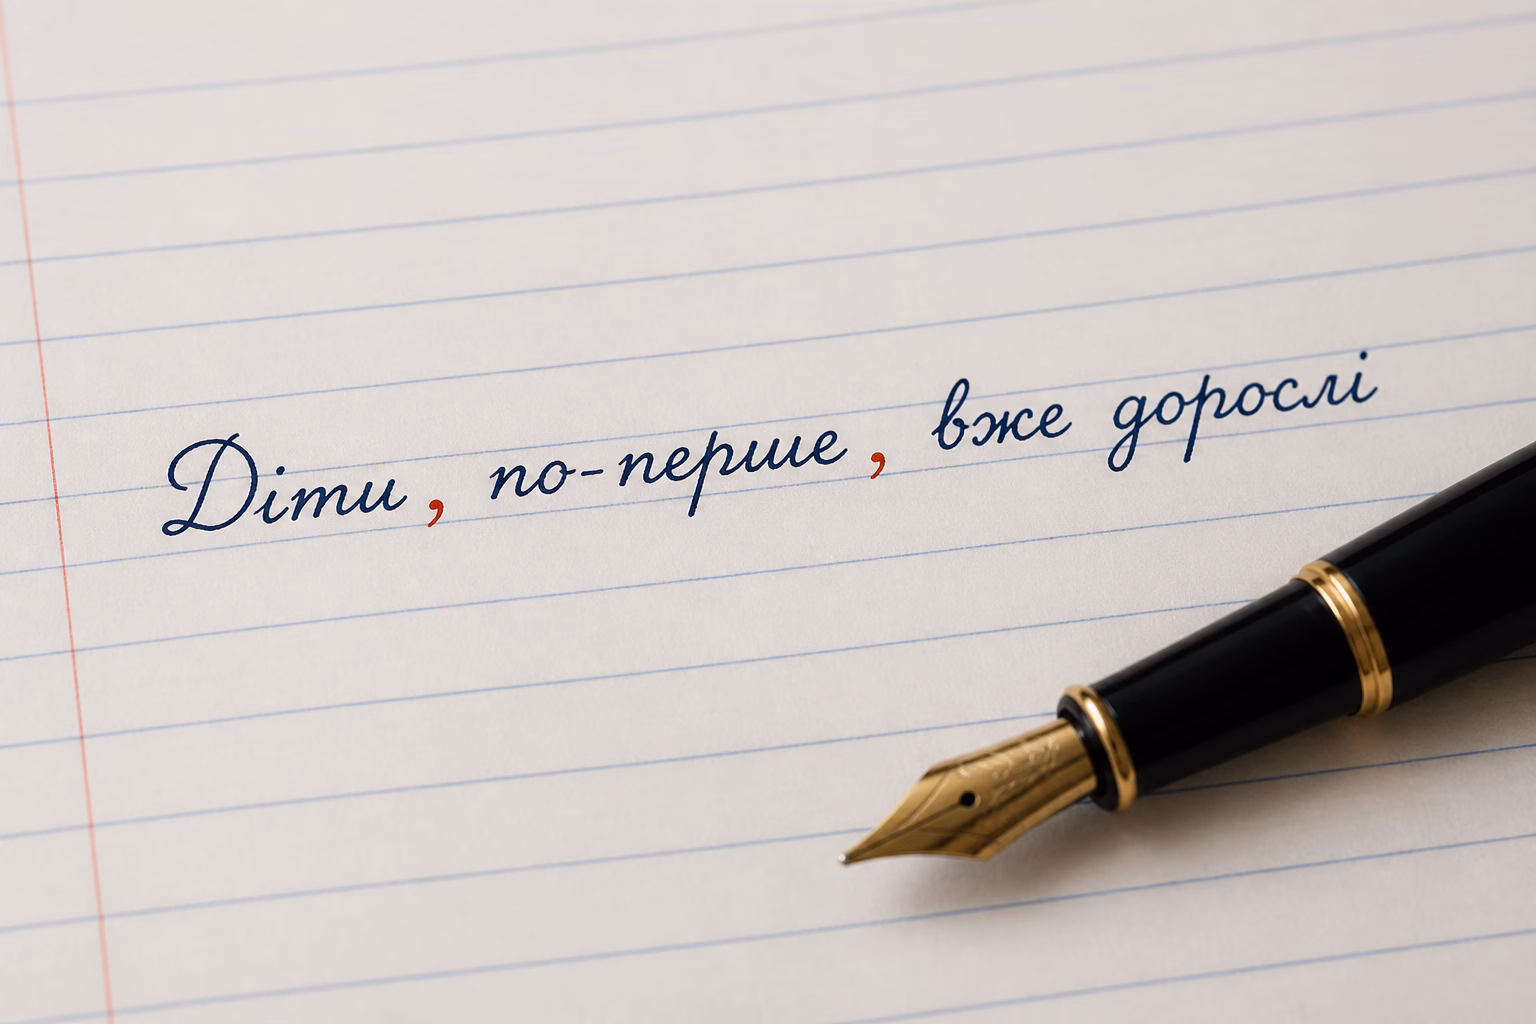 Діти, по-перше, вже дорослі